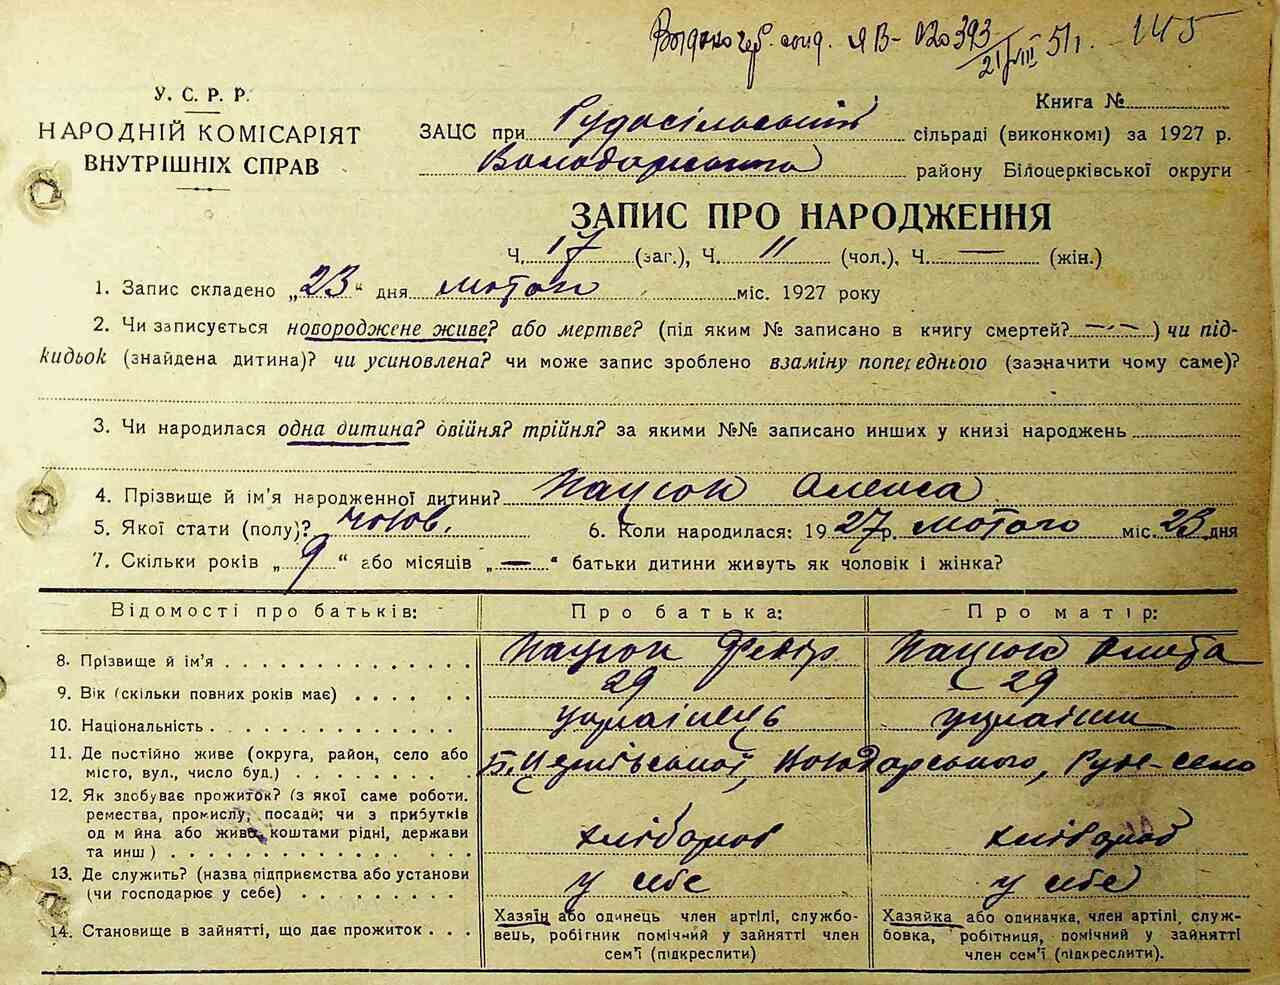 Видано чер. свід. ЯВ- №20393 21/VIII 51 р. 145
У. С. Р. Р.
НАРОДНІЙ КОМІСАРІЯТ
ВНУТРІШНІХ СПРАВ
Книга №
ЗАЦС при Рудосільській сільраді (виконкомі) за 1927 р.
Володарського району Білоцерківської округи
ЗАПИС ПРО НАРОДЖЕННЯ
Ч. 17 (заг.), Ч. 11 (чол.), Ч. — (жін.)
1. Запис складено „23“ дня лютого міс. 1927 року
2. Чи записується новороджене живе? або мертве? (під яким № записано в книгу смертей? — · — ) чи під-
кидьок (знайдена дитина)? чи усиновлена? чи може запис зроблено взаміну попереднього (зазначити чому саме)?
3. Чи народилася одна дитина? двійня? трійня? за якими №№ записано инших у книзі народжень
4. Прізвище й ім'я народженної дитини? Пацюк Олекса
5. Якої стати (полу)? чолов. 6. Коли народилася: 1927 р. лютого міс. 23 дня
7. Скільки років „9“ або місяців „—“ батьки дитини живуть як чоловік і жінка?
Відомості про батьків: Про батька: Про матір:
8. Прізвище й ім'я Пацюк Федір Пацюк
9. Вік (скільки повних років має) 29 29
10. Національність українець українка
11. Де постійно живе (округа, район, село або
місто, вул., число буд.) Б. Церківської, Володарського, Руде-село
12. Як здобуває прожиток? (з якої саме роботи,
ремества, промислу, посади; чи з прибутків
од м йна або живе, коштами рідні, держави
та инш) хлібороб хлібороб
13. Де служить? (назва підприємства або установи
(чи господарює у себе) у себе у себе
14. Становище в зайнятті, що дає прожиток
Хазяїн або одинець член артілі, службо-
вець, робігник помічний у зайнятті член
сем'ї (підкреслити)
Хазяйка або одиначка, член артілі, служ-
бовка, робітниця, помічний у зайнятті
член сем'ї (підкреслити).